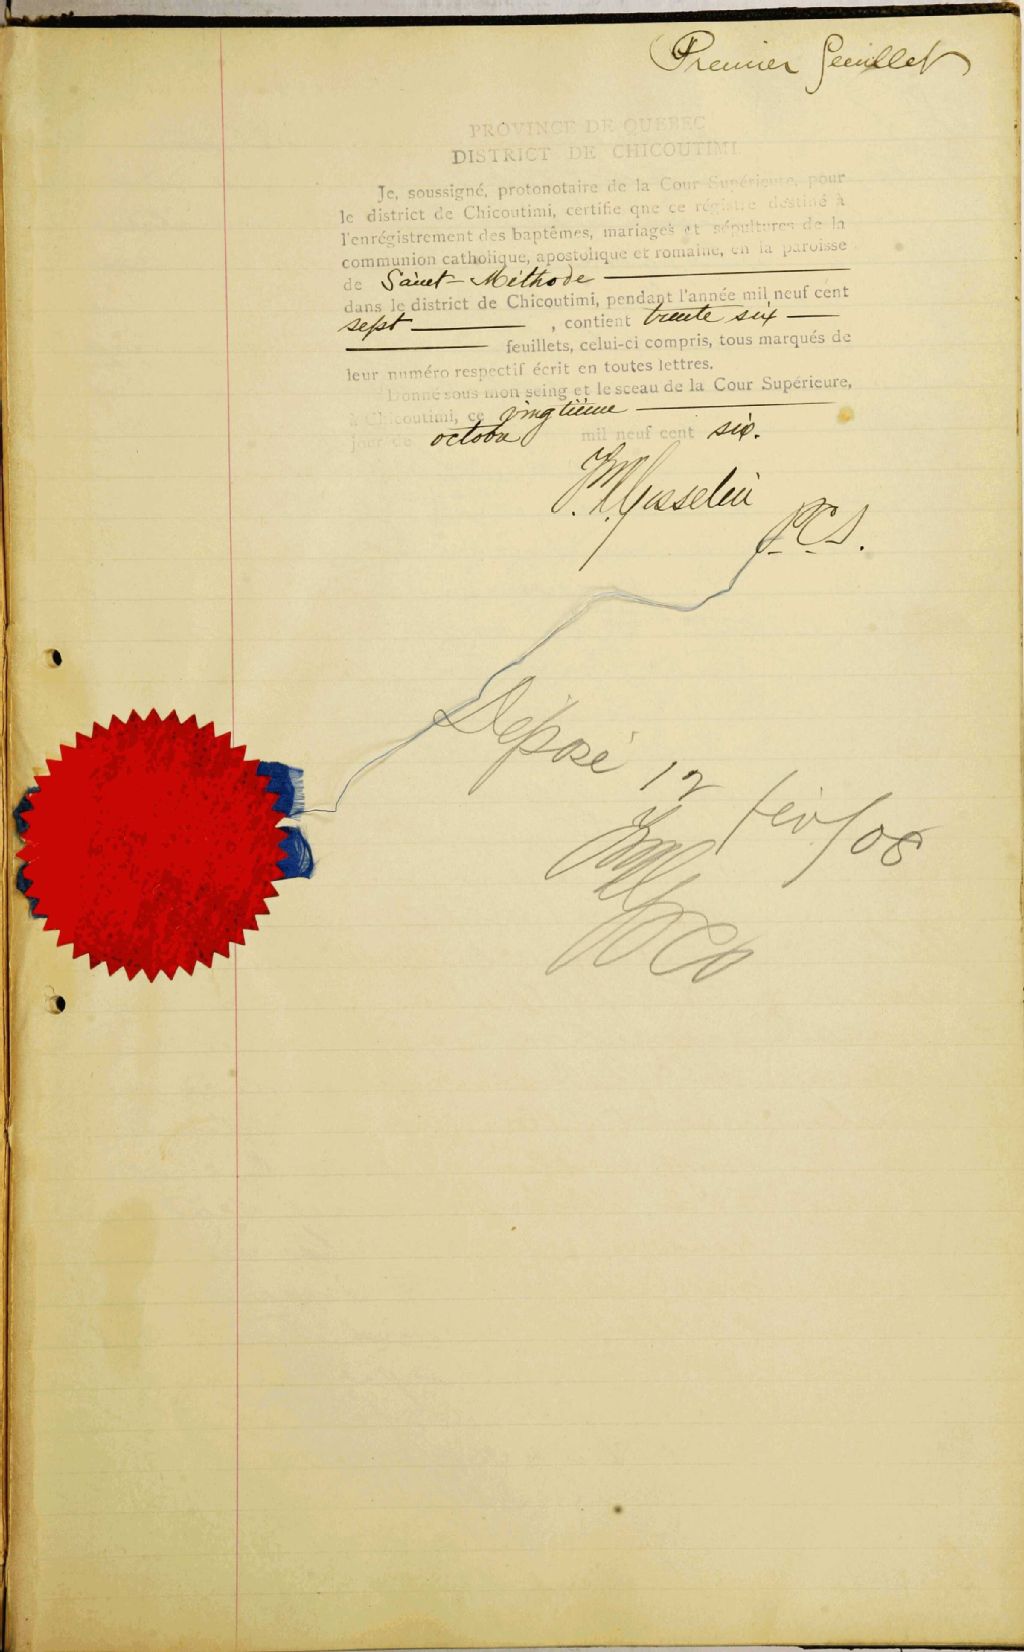 Premier feuillet
PROVINCE DE QUEBEC
DISTRICT DE CHICOUTIMI
Je, soussigné, protonotaire de la Cour Supérieure, pour
le district de Chicoutimi, certifie qne ce régistre destiné à
l'enrégistrement des baptêmes, mariages et sépultures de la
communion catholique, apostolique et romaine, en la paroisse
de Saint-Méthode
dans le district de Chicoutimi, pendant l'année mil neuf cent
sept , contient trente six
feuillets, celui-ci compris, tous marqués de
leur numéro respectif écrit en toutes lettres.
Donné sous mon seing et le sceau de la Cour Supérieure,
à Chicoutimi, ce vingtième
jour de octobre mil neuf cent six.
Gosselin
P.C.S.
Déposé 12 fév/08